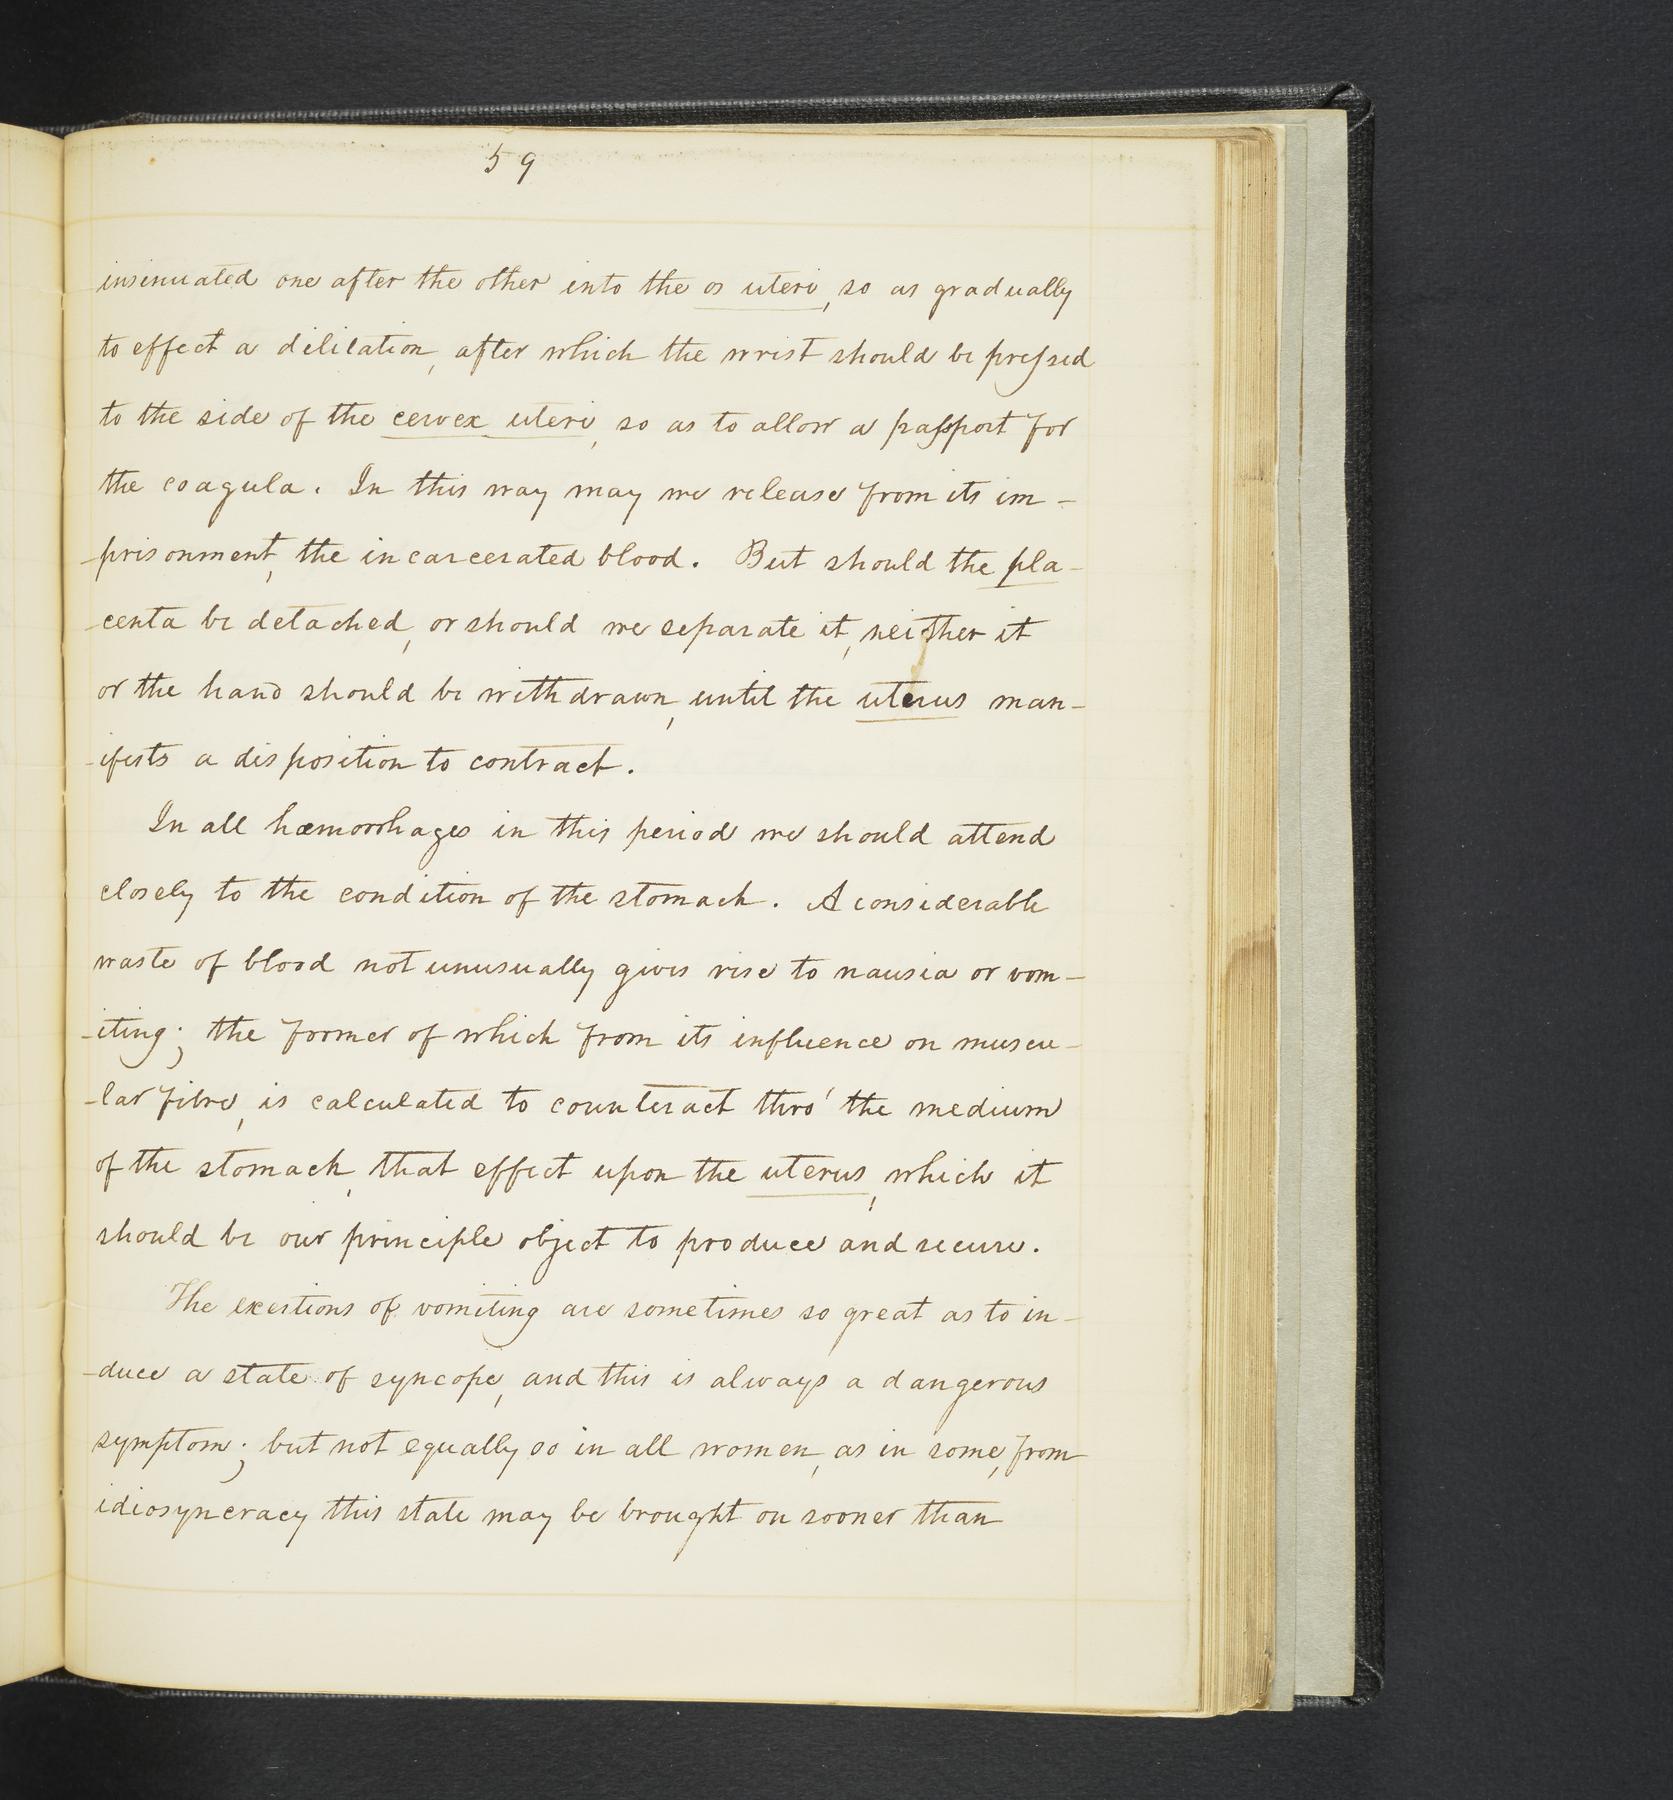 59
insinuated one after the other into the os uteri, so as gradually
to effect a dilitation, after which the wrist should be pressed
to the side of the cervex uteri, so as to allow a passport for
the coagula. In this way may we release from its im-
-prisonment, the incarcerated blood. But should the pla-
-centa be detached, or should we separate it, neither it
or the hand should be withdrawn, until the uterus man-
-ifests a disposition to contract.
In all hæmorrhages in this period we should attend
closely to the condition of the stomach. A considerable
waste of blood not unusually gives rise to nausia or vom-
-iting; the former of which from its influence on muscu-
-lar fibre, is calculated to counteract thro' the medium
of the stomach, that effect upon the uterus, which it
should be our principle object to produce and secure.
The exertions of vomiting are sometimes so great as to in-
-duce a state of syncope, and this is always a dangerous
symptom; but not equally so in all women, as in some, from
idiosyncracy this state may be brought on sooner than